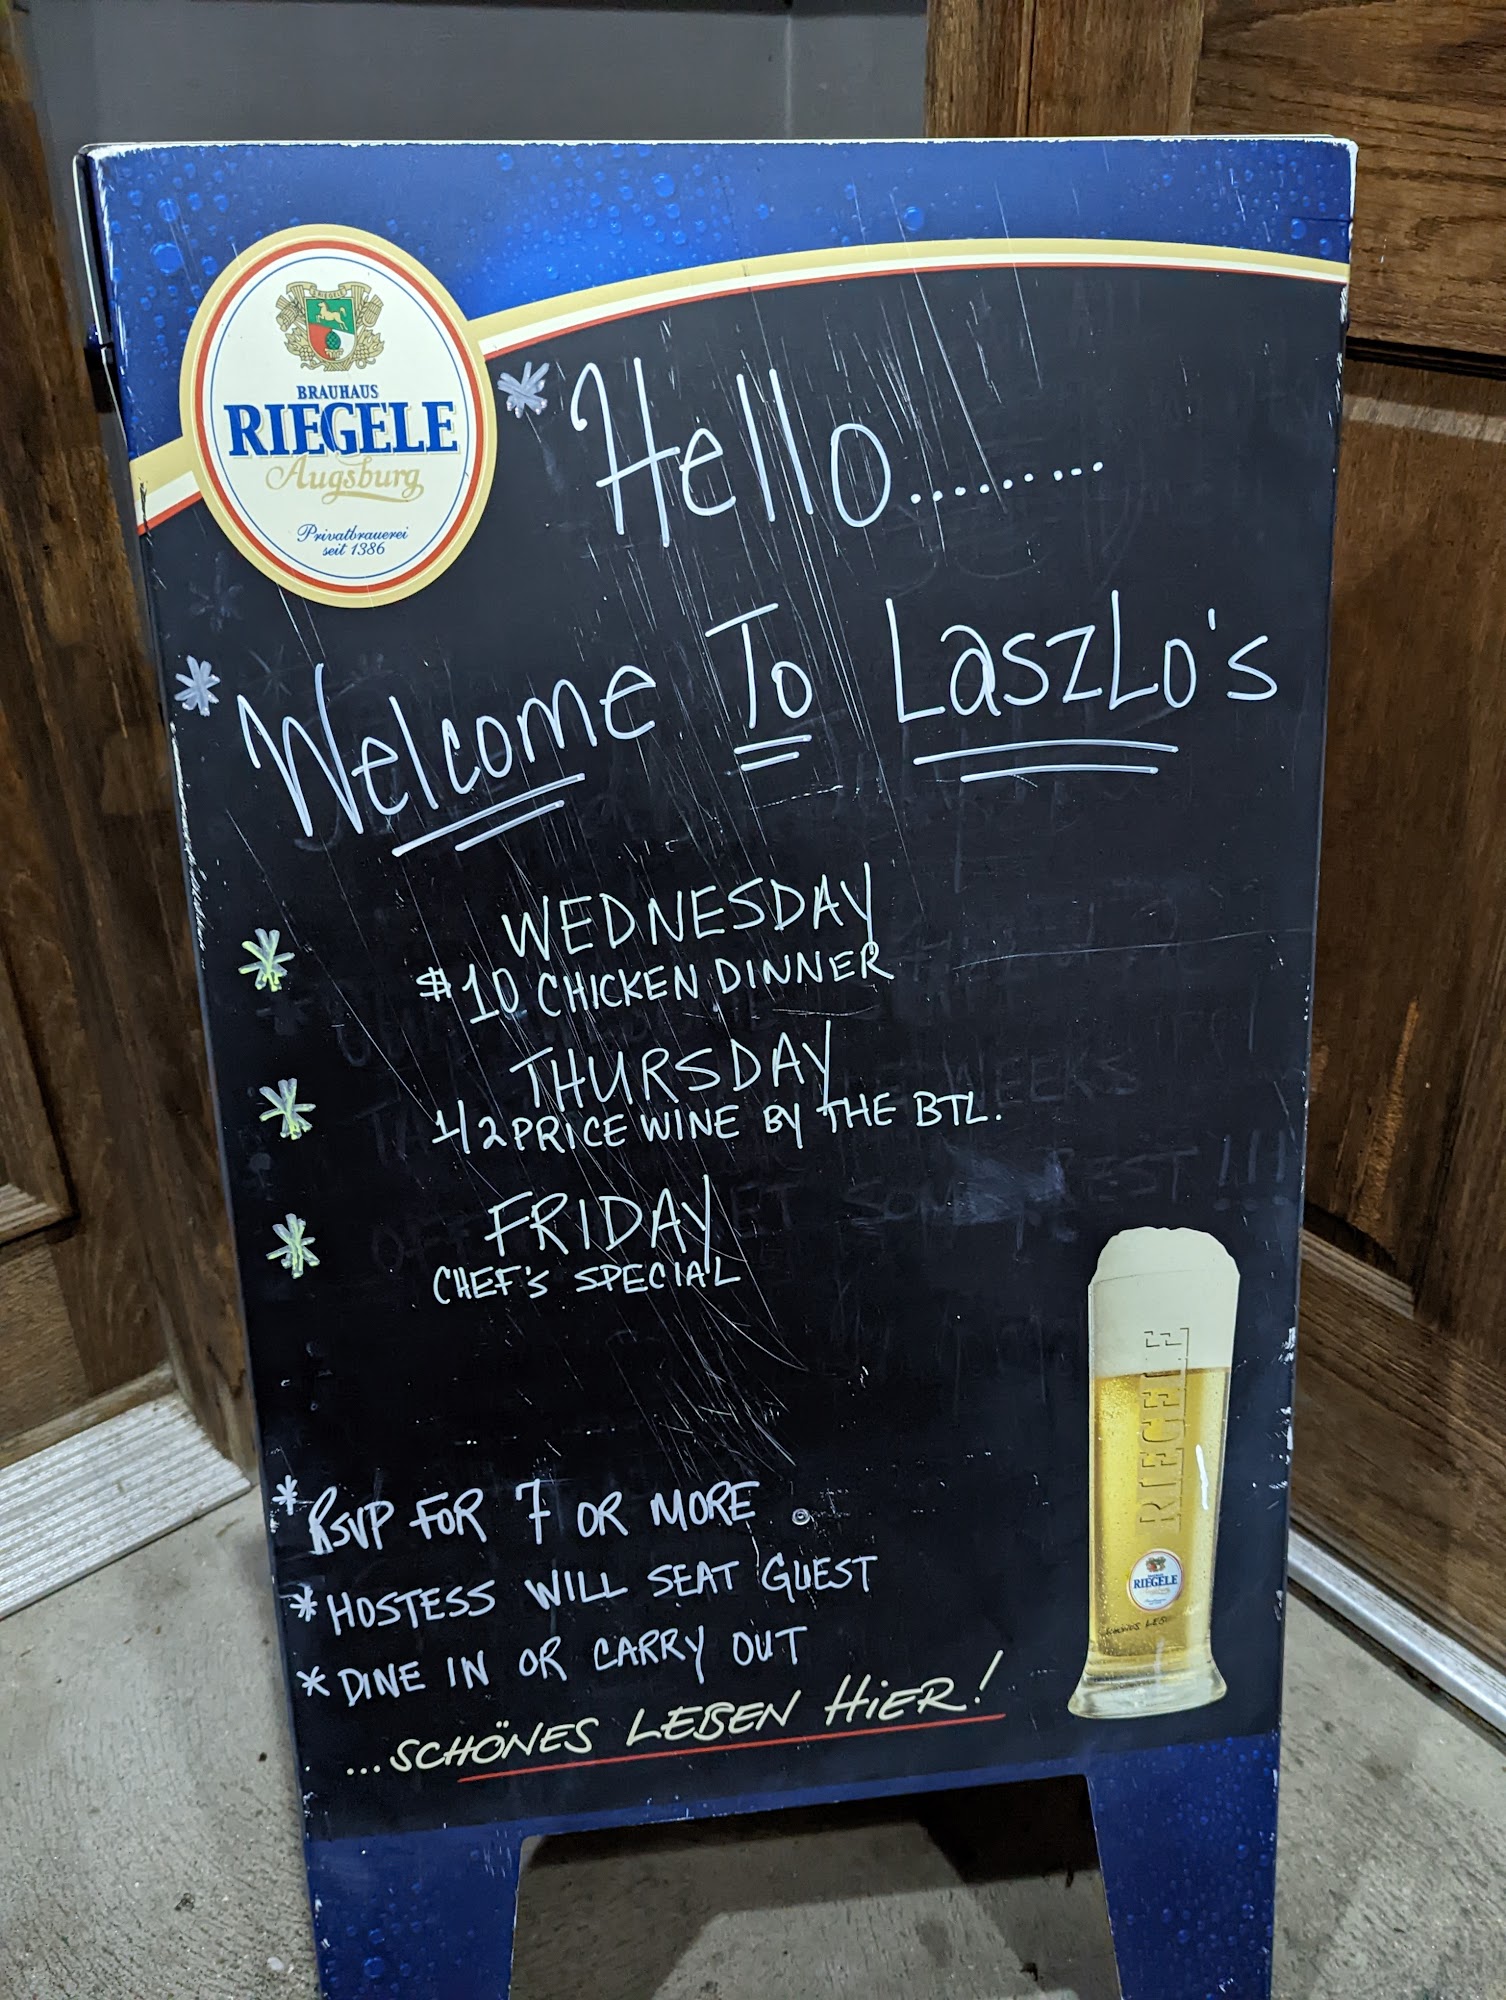 BRAUHAUS
RIEGELE
Augsburg
Privatbrauerei
seit 1386
* Hello.........
* Welcome To LaszLo's
* WEDNESDAY
$10 CHICKEN DINNER
* THURSDAY
1/2 PRICE WINE BY THE BTL.
* FRIDAY
CHEF'S SPECIAL
* RSVP FOR 7 OR MORE
* HOSTESS WILL SEAT GUEST
* DINE IN OR CARRY OUT
...SCHÖNES LEBEN HiER!
RIEGELE
RIEGELE